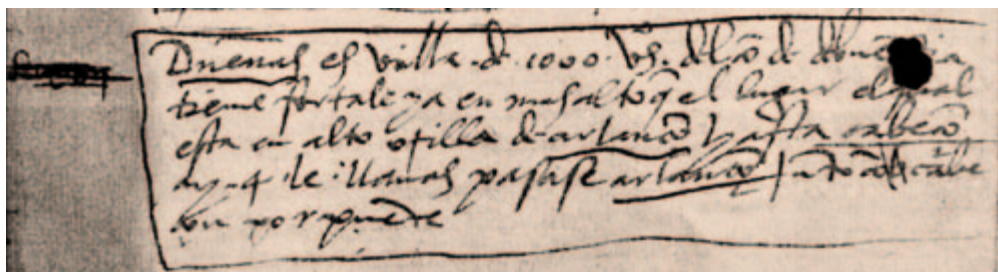 Dueñas es villa de 1000 vºs. del cº de
tiene fortaleza en mas alto q el lugar el qual
esta en alto orilla de arlança y hasta cabeço
ay 4 le. llanas pasase arlança junto a
por puente